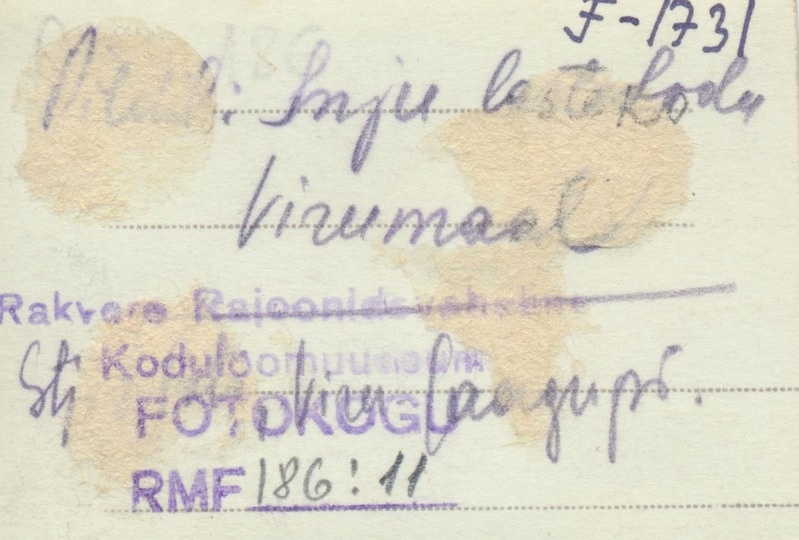 F-1731
Pildil: Inju lastekodu
Virumaal
Rakvere Rajoonidevaheline
Koduloomuuseum
Viru Jaagupi.
FOTOKOGU
RMF 186:11